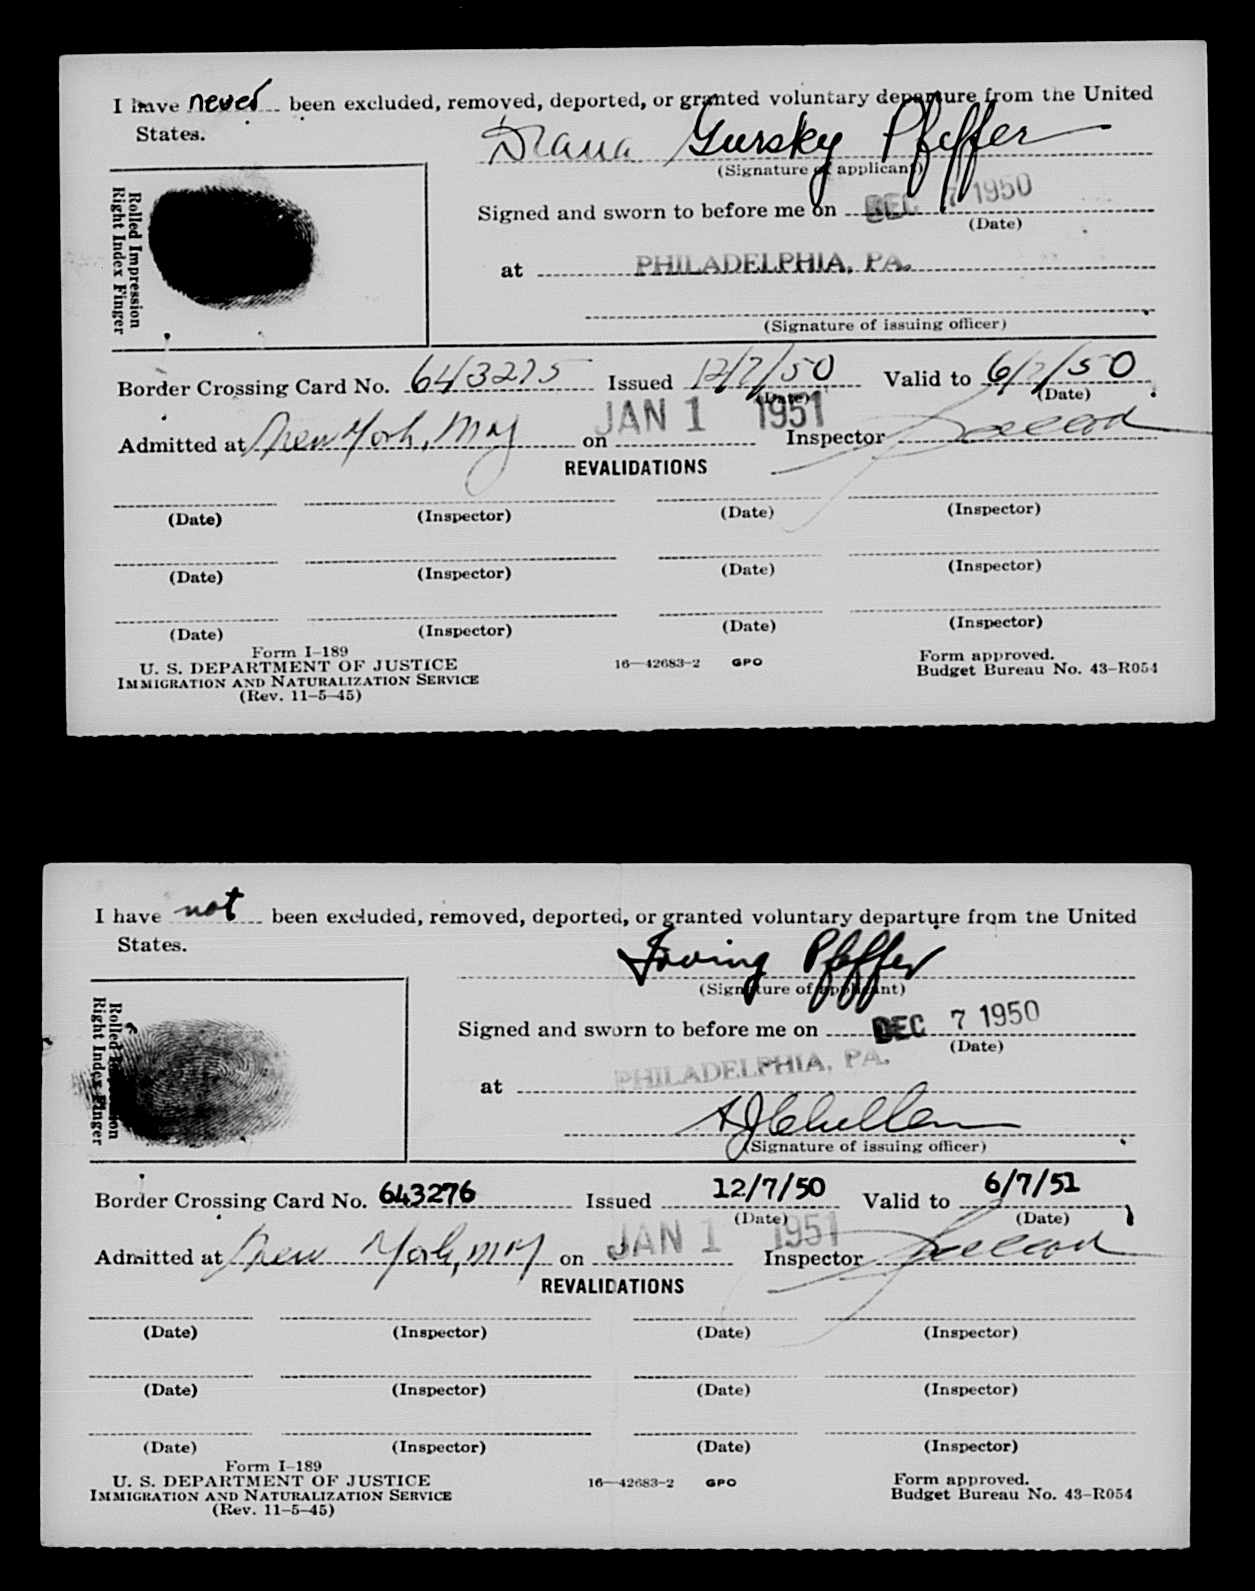 I have never been excluded, removed, deported, or granted voluntary departure from the United
States.
Diana Gursky Pfeffer
(Signature of applicant)
Rolled Impression
Right Index Finger
Signed and sworn to before me on DEC 7 1950
(Date)
at PHILADELPHIA, PA.
(Signature of issuing officer)
Border Crossing Card No. 643275 Issued 12/7/50 Valid to 6/7/50
(Date) (Date)
Admitted at New York, on JAN 1 1951 Inspector
REVALIDATIONS
(Date) (Inspector) (Date) (Inspector)
(Date) (Inspector) (Date) (Inspector)
(Date) (Inspector) (Date) (Inspector)
Form I-189
U. S. DEPARTMENT OF JUSTICE 16—42683-2 GPO Form approved.
IMMIGRATION AND NATURALIZATION SERVICE Budget Bureau No. 43-R054
(Rev. 11-5-45)
I have not been excluded, removed, deported, or granted voluntary departure from the United
States.
Irving Pfeffer
(Signature of applicant)
Rolled Impression
Right Index Finger
Signed and sworn to before me on DEC 7 1950
(Date)
at PHILADELPHIA, PA.
(Signature of issuing officer)
Border Crossing Card No. 643276 Issued 12/7/50 Valid to 6/7/51
(Date) (Date)
Admitted at New York, on JAN 1 1951 Inspector
REVALIDATIONS
(Date) (Inspector) (Date) (Inspector)
(Date) (Inspector) (Date) (Inspector)
(Date) (Inspector) (Date) (Inspector)
Form I-189
U. S. DEPARTMENT OF JUSTICE 16—42683-2 GPO Form approved.
IMMIGRATION AND NATURALIZATION SERVICE Budget Bureau No. 43-R054
(Rev. 11-5-45)